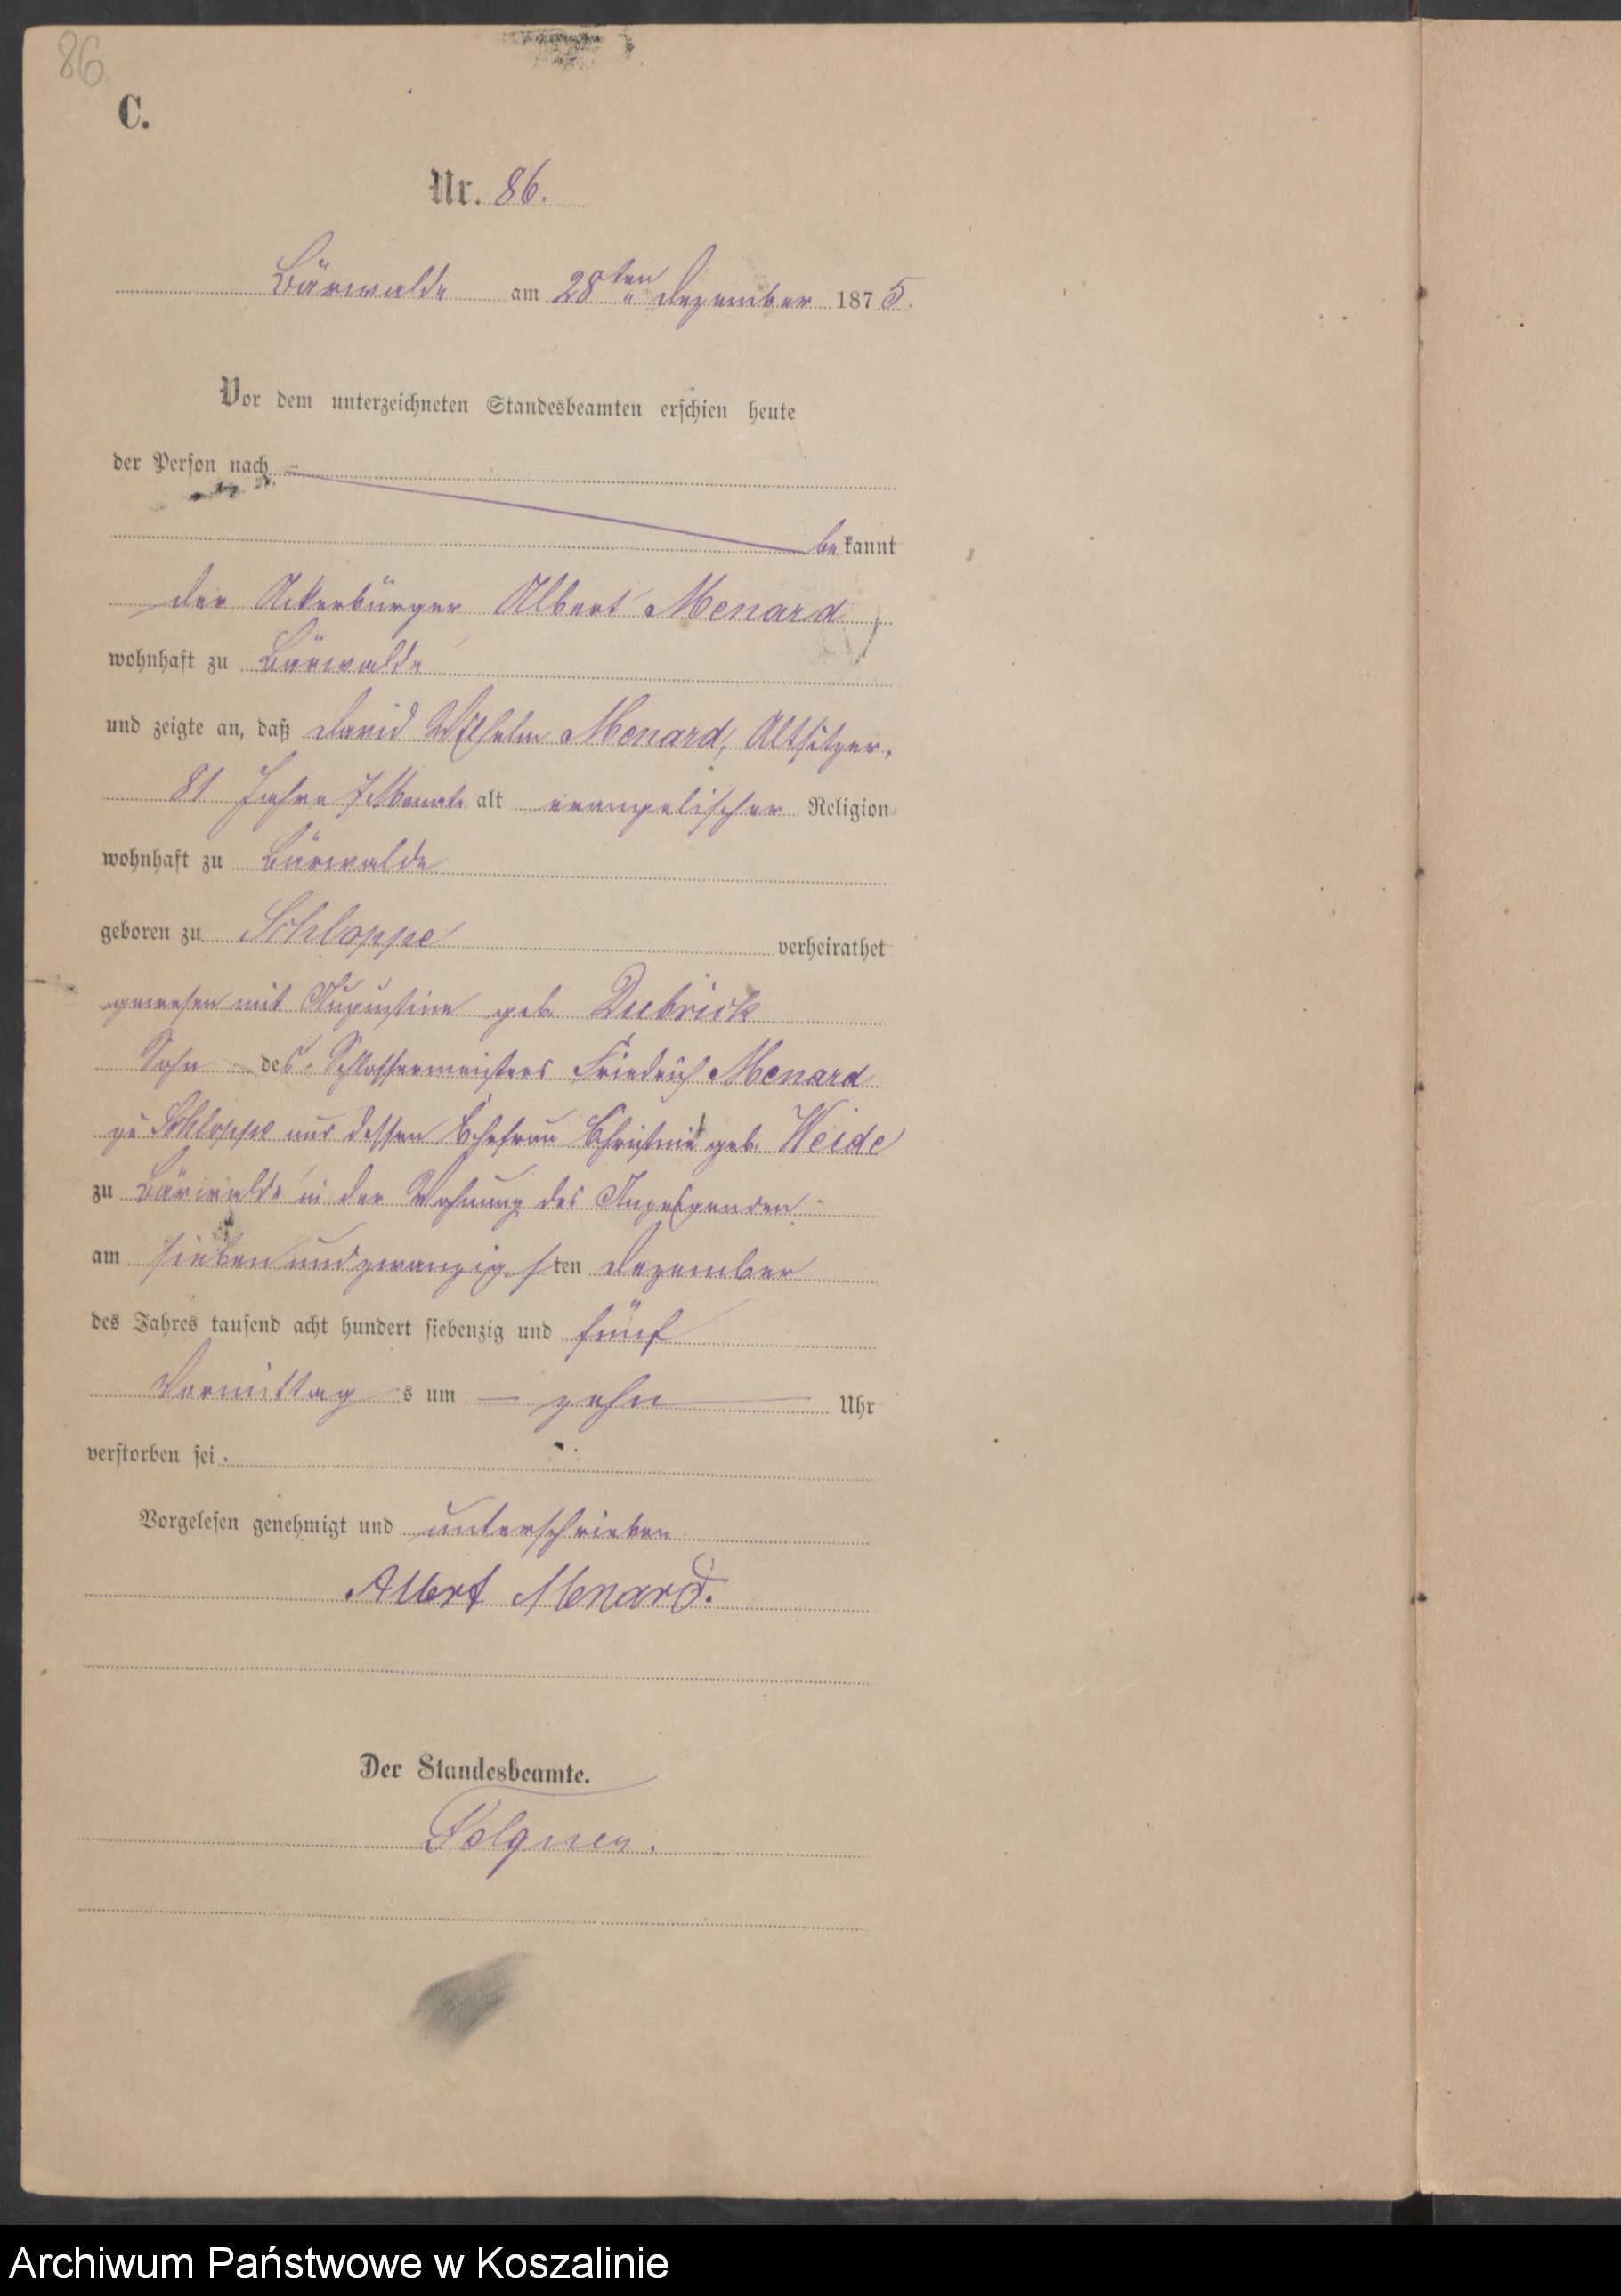 86
C.
Nr. 86.
Bärwalde am 28ten Dezember 1875.
Vor dem unterzeichneten Standesbeamten erschien heute
der Person nach
bekannt
der Ackerbürger Albert Menard
wohnhaft zu Bärwalde
und zeigte an, daß David Wilhelm Menard, Altsitzer,
81 Jahre 7 Monate alt evangelischer Religion
wohnhaft zu Bärwalde
geboren zu Schloppe verheirathet
gewesen mit Augustine geb. Dubrick
Sohn des Schlossermeisters Friedrich Menard
zu Schloppe und dessen Ehefrau Christine geb. Weide
zu Bärwalde in der Wohnung des Anzeigenden
am siebenundzwanzigsten Dezember
des Jahres tausend acht hundert siebenzig und fünf
Vormittags um zehn Uhr
verstorben sei.
Vorgelesen genehmigt und unterschrieben
Albert Menard.
Der Standesbeamte.
Folgner.
Archiwum Państwowe w Koszalinie